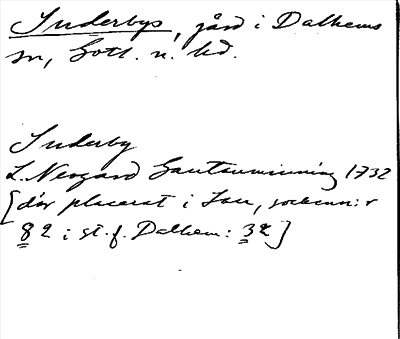 Suderbys, gård i Dalhems
sn, Gotl. n. hd.
Suderby
L. Neogard Gautauminning 1732
[där placerat i Lau, sockennr:r
82 i st. f. Dalhem: 32]